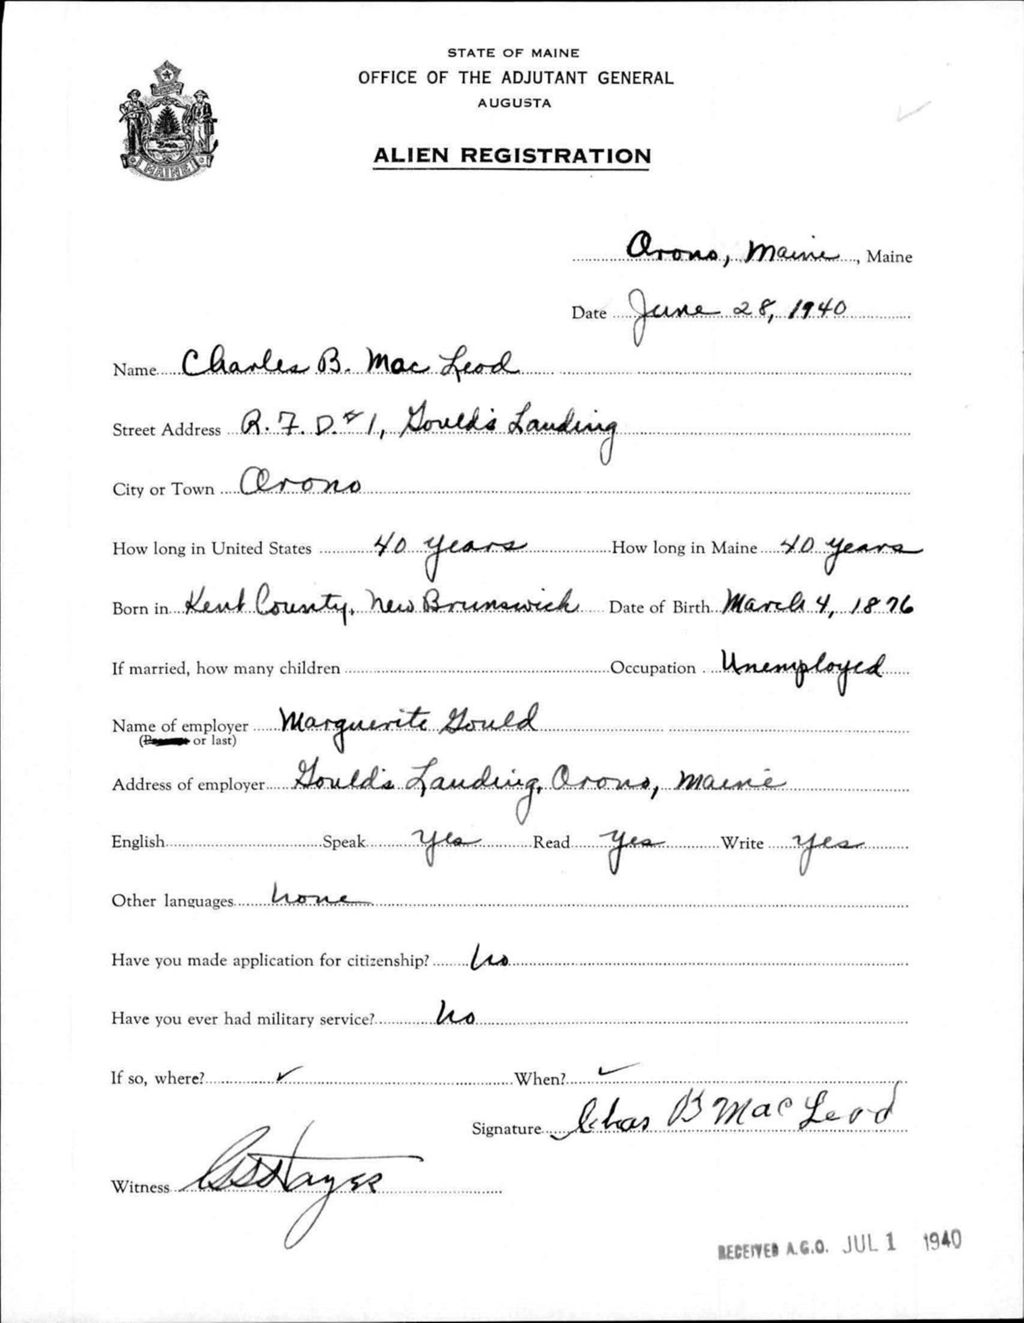 STATE OF MAINE
OFFICE OF THE ADJUTANT GENERAL
AUGUSTA
ALIEN REGISTRATION
MAINE
Orono, Maine, Maine
Date June 28, 1940
Name Charles B. Mac Leod
Street Address R. F. D. #1, Gould's Landing
City or Town Orono
How long in United States 40 years How long in Maine 40 years
Born in Kent County, New Brunswick Date of Birth March 4, 1876
If married, how many children Occupation Unemployed
Name of employer Marguerite Gould
(or last)
Address of employer Gould's Landing, Orono, Maine
English Speak Yes Read Yes Write Yes
Other languages none
Have you made application for citizenship? No
Have you ever had military service? No
If so, where? ✓ When? ✓
Signature Chas B MacLeod
Witness Hayes
RECEIVED A.G.O. JUL 1 1940